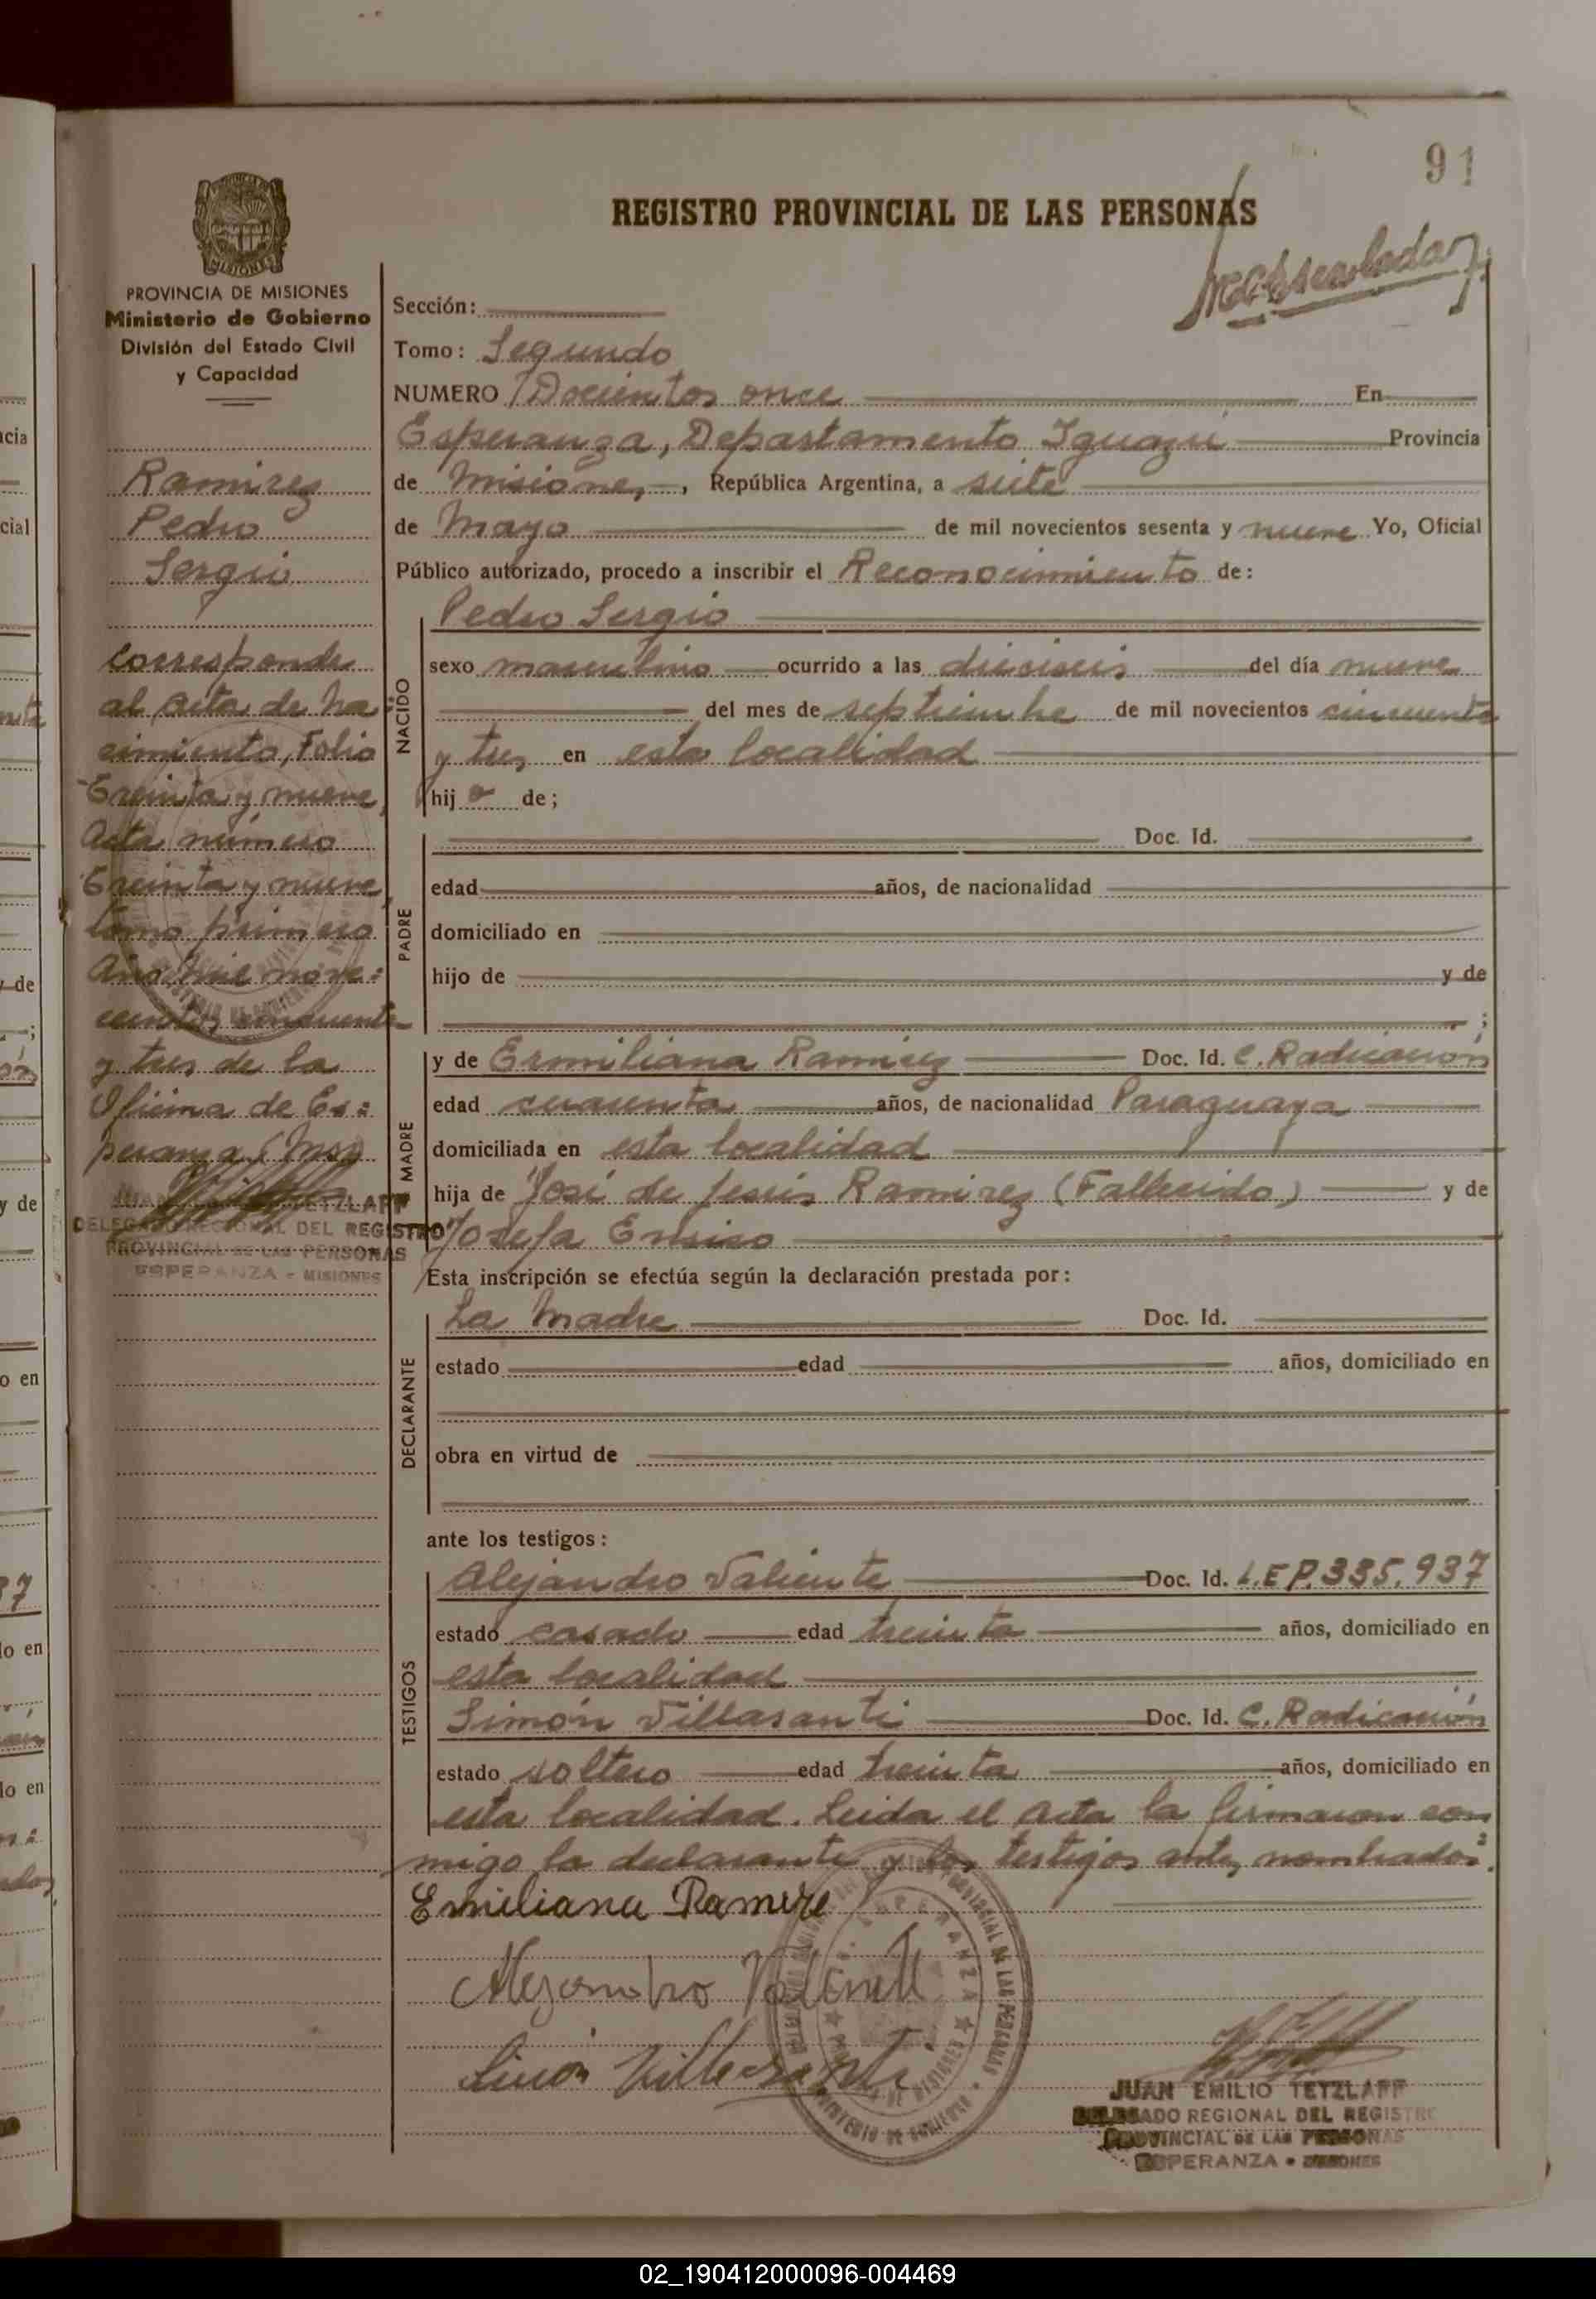 91
REGISTRO PROVINCIAL DE LAS PERSONAS
PROVINCIA DE MISIONES
Ministerio de Gobierno
División del Estado Civil
y Capacidad
Ramirez
Pedro
Sergio
Corresponde
al acta de na
cimiento, Folio
Treinta y nueve,
Acta número
Treinta y nueve,
tomo primero
Año mil nove=
cientos cincuenta
y tres de la
Oficina de Es=
peranza (Mns)
JUAN EMILIO TETZLAFF
DELEGADO REGIONAL DEL REGISTRO
PROVINCIAL DE LAS PERSONAS
ESPERANZA - MISIONES
Sección:
Tomo: Segundo
NUMERO Docientos once En
Esperanza, Departamento Iguazú Provincia
de Misiones, República Argentina, a siete
de Mayo de mil novecientos sesenta y nueve Yo, Oficial
Público autorizado, procedo a inscribir el Reconocimiento de:
NACIDO
Pedro Sergio
sexo masculino ocurrido a las dieciseis del día nueve
del mes de septiembre de mil novecientos cincuenta
y tres en esta localidad
hij o de;
PADRE
Doc. Id.
edad años, de nacionalidad
domiciliado en
hijo de y de
;
MADRE
y de Ermiliana Ramirez Doc. Id. C. Radicación
edad cuarenta años, de nacionalidad Paraguaya
domiciliada en esta localidad
hija de José de Jesús Ramirez (Fallecido) y de
Josefa Enciso
Esta inscripción se efectúa según la declaración prestada por:
DECLARANTE
La Madre Doc. Id.
estado edad años, domiciliado en
obra en virtud de
ante los testigos:
TESTIGOS
Alejandro Valiente Doc. Id. L.E P. 335.937
estado casado edad treinta años, domiciliado en
esta localidad
Simón Villasanti Doc. Id. C. Radicación
estado soltero edad treinta años, domiciliado en
esta localidad. Leida el acta la firmaron con
migo la declarante y los testigos antes nombrados.
Emiliana Ramire
Alejandro
Simón Villasanti
JUAN EMILIO TETZLAFF
DELEGADO REGIONAL DEL REGISTRO
PROVINCIAL DE LAS PERSONAS
ESPERANZA - MISIONES
02_190412000096-004469